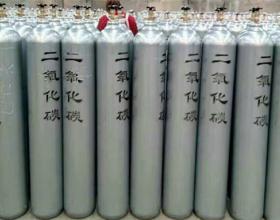 二氧化碳
二氧化碳
二氧化碳
二氧化碳
二氧化碳
二氧化碳